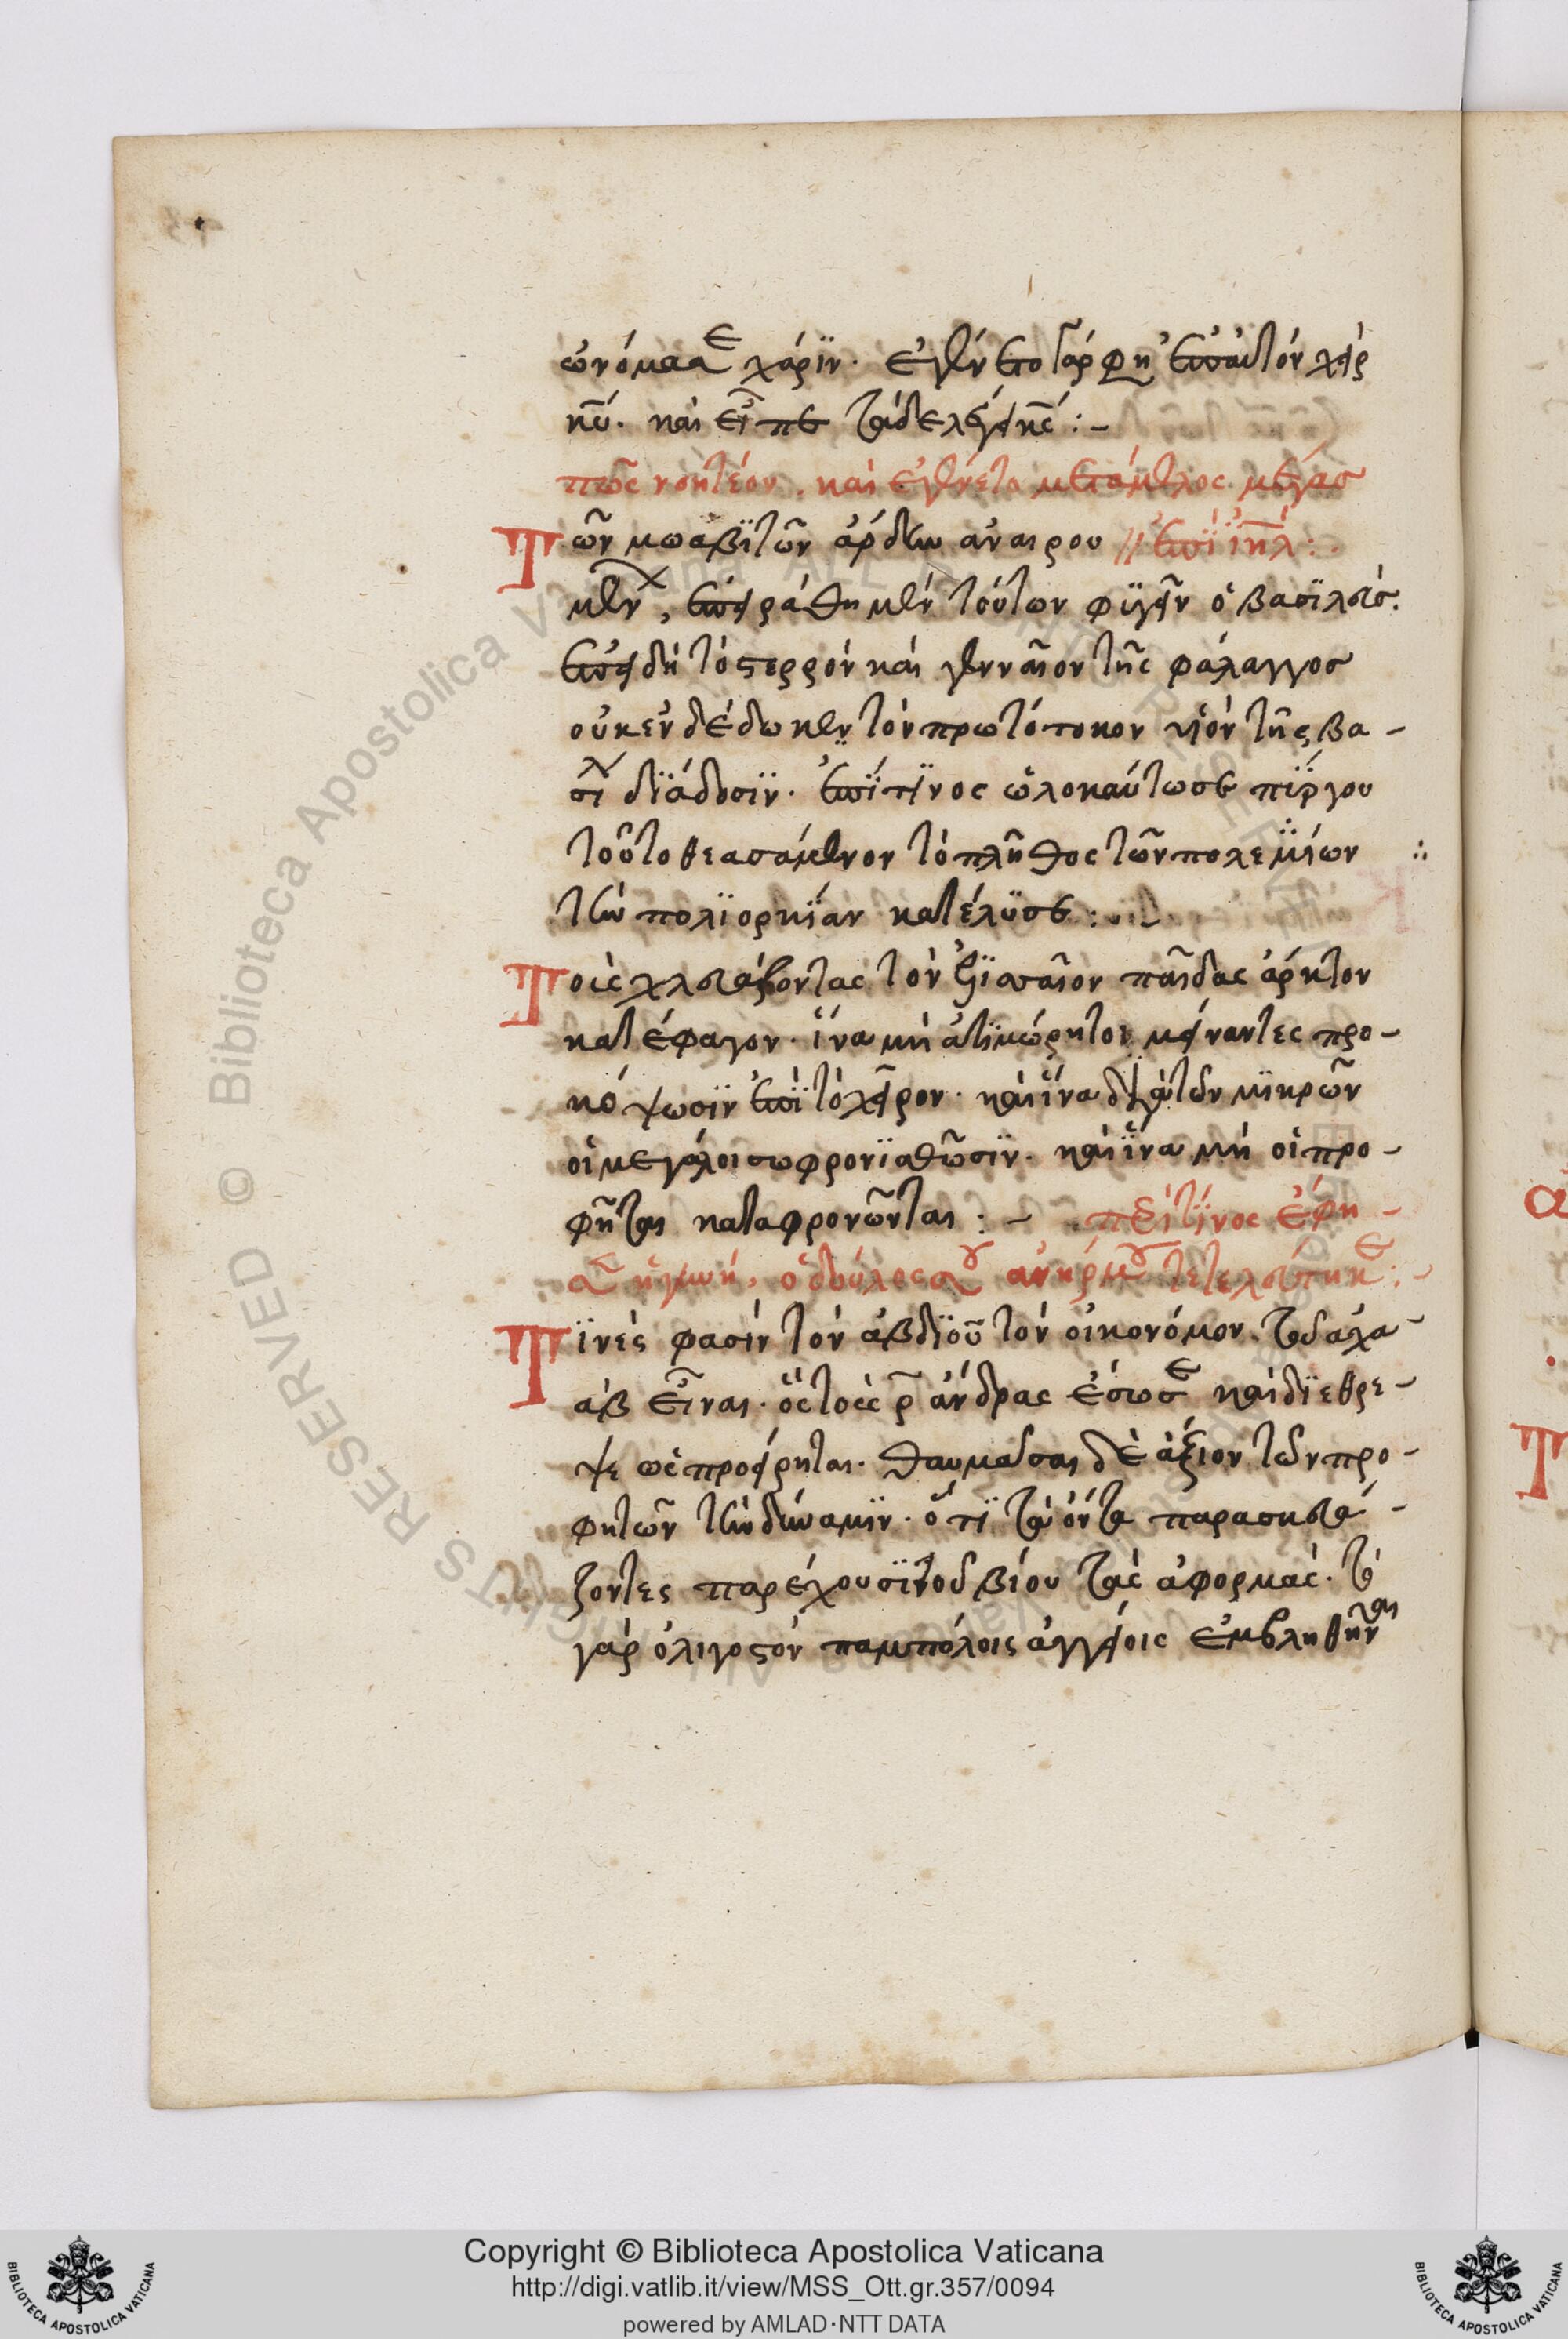 ὠνόμασε χάριν. ἐγένετο γάρ φη ἐπ αυτόν χείρ
κυ. καὶ εἶπε τάδε λέγει κς :-
πῶς νοητέον, καὶ ἐγένετο μετάμελος μέγας
Τῶν μωαβϊτῶν ἄρδην αναιρου // ἐπῒ ιηλ :
μέν, ἐπειράθη μέν τούτων φϋγεῖν ὁ βασϊλεύς.
ἐπεὶ δὴ τὸ στερρόν καὶ γενναῖον τῆς φάλαγγος
οὐκ ἐνδέδωκεν τὸν πρωτότοκον υἱόν τῆς βα-
σϊλ διάδοσϊν. ἐπῒ τϊνος ὡλοκαύτωσε πύργου
τοῦτο θεασάμενον τὸ πλῆθος τῶν πολεμΐων
τὴν πολϊορκΐαν κατέλϋσε :
Τοὺς χλευάζοντας τὸν ἐλισσαῖον παῖδας ἄρκτοι
κατέφαγον. ἵνα μὴ ἀτϊμώρητοι μείναντες προ-
κόψωσϊν ἐπῒ τὸ χεῖρον. καὶ ἵνα διὰ τῶν μϊκρῶν
οἱ μεγάλοι σωφρονϊσθῶσϊν. καὶ ἵνα μὴ οἱ προ-
φῆται καταφρονῶνται :- περὶ τΐνος ἔφη-
σε ἡ γυνή, ὁ δοῦλος σου ἀνήρ μου τετελεύτηκε :-
Τϊνές φασίν τὸν ἀβδϊοῦ τὸν οἰκονόμον. τοῦ ἀχα-
άβ εἶναι. ὅς τοὺς ρ ἄνδρας ἔσωσε καὶ δϊέθρε-
ψε ὡς προείρηται. θαυμάσαι δὲ ἄξιον τῶν προ-
φητῶν τὴν δύναμϊν. ὅτϊ τὰ ὄντα παρασκευά-
ζοντες παρέχουσϊ τοῦ βίου τὰς ἀφορμάς. τὸ
γάρ ὀλιγοστόν παμπόλοις ἀγγείοις ἐμβληθῆναι
Copyright © Biblioteca Apostolica Vaticana
http://digi.vatlib.it/view/MSS_Ott.gr.357/0094
powered by AMLAD·NTT DATA
BIBLIOTECA APOSTOLICA VATICANA
BIBLIOTECA APOSTOLICA VATICANA